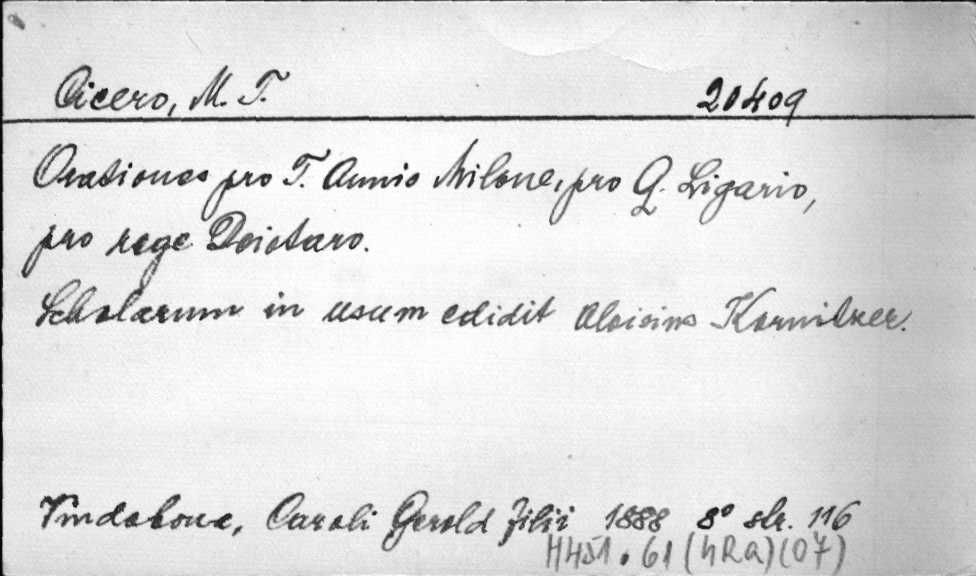 Cicero, M. T. 20409
Orationes pro T. Annio Milone, pro Q. Ligario,
pro rege Deiotaro.
Scholarum in usum edidit Aloisius Kornitzer.
Vindobonae, Caroli Gerold filii 1888 8° str. 116
H451.61(hRa)(07)